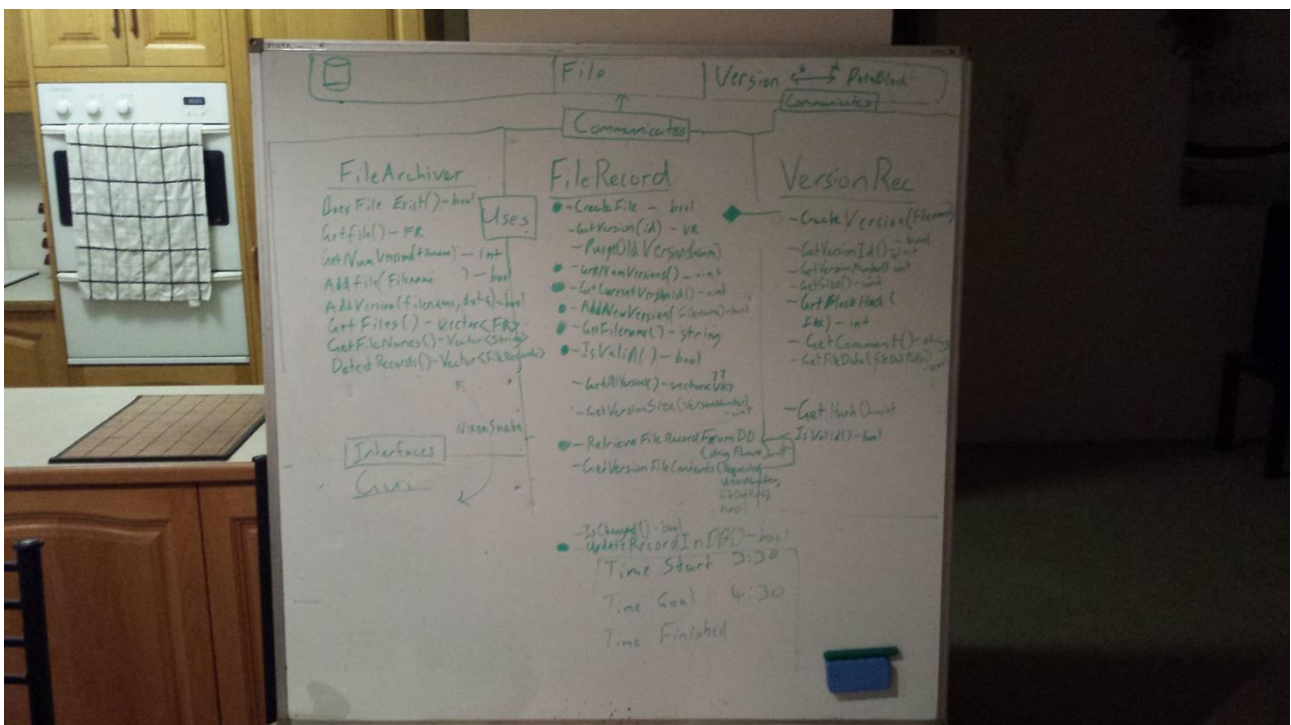 File
Version
DataBlock
Communicates
Communicates
FileArchiver
Does File Exist() - bool
Getfile() - FR
GetNumVersions(filename) - int
Add file (Filename ) - bool
AddVersion(filename, - bool
GetFiles() - Vector<FR>
GetFileNames() - Vector<String>
DetectRecords() - Vector<FileRecords>
Uses
Interfaces
Gui
FileRecord
- CreateFile - bool
- GetVersion(id) - VR
- PurgeOldVersions(num)
- GetNumVersions() - uint
- GetCurrentVersionId() - uint
- AddNewVersion(filename) - bool
- GetFilename() - string
- IsValid() - bool
??
- GetAllVersion() - vector<VR>
- GetVersionSize(VersionNumber)
- uint
- RetrieveFileRecordFromDD
(string
- GetVersionFileContents(
bool
- IsChanged() - bool
- UpdateRecordInDBD - bool
Time Start 3:30
Time Goal 4:30
Time Finished
VersionRec
- CreateVersion(Filename)
- bool
- GetVersionId() - uint
- GetVersionNumber() - uint
- GetSize() - uint
- GetBlockHash(
- int
- GetComment() - string
- GetFileData(
- GetHash() uint
IsValid() - bool